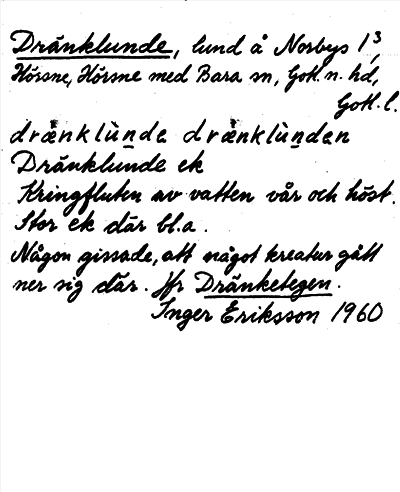 Dränklunde, lund å Norbys 1³,
Hörsne, Hörsne med Bara sn, Gotl. n. hd,
Gotl. l.
drænklùnda drænklùndan
Dränklunde ek
Kringfluten av vatten vår och höst.
Stor ek där bl.a.
Någon gissade, att något kreatur gått
ner sig där. Jfr Dränketegen.
Inger Eriksson 1960